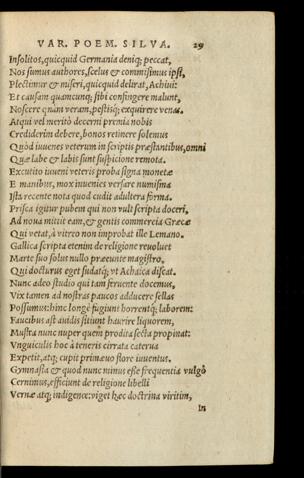 VAR. POEM. SILVA. 29
Insolitos, quicquid Germania deniq; peccat,
Nos sumus authores, scelus & commisimus ipsi,
Plectimur & miseri, quicquid delirat, Achiui:
Et causam quamcunq; sibi confingere malunt,
Noscere quàm veram, pestisq; exquirere venas.
Atqui vel meritò decerni premia nobis
Crediderim debere, bonos retinere solemus
Quòd iuuenes veterum in scriptis præstantibus, omni
Quæ labe & labis sunt suspicione remota.
Excutito iuueni veteris proba signa monetæ
E manibus, mox inuenies versare numisma
Ista recente nota quod cudit adultera forma.
Prisca igitur pubem qui non vult scripta doceri,
Ad noua mittit eam, & gentis commercia Græcæ
Qui vetat, à vitreo non improbat ille Lemano.
Gallica scripta etenim de religione reuoluet
Marte suo solus nullo præeunte magistro.
Qui docturus eget sudatq; vt Achaica discat.
Nunc adeo studio qui tam feruente docemus,
Vix tamen ad nostras paucos adducere sellas
Possumus: hinc longè fugiunt horrentq; laborem:
Faucibus ast auidis sitiunt haurire liquorem,
Mustra nunc nuper quem prodita secta propinat:
Vnguiculis hoc à teneris cirrata caterua
Expetit, atq; cupit primæuo flore iuuentus.
Gymnasta & quod nunc minus esse frequentia vulgò
Cernimus, efficiunt de religione libelli
Vernæ atq; indigenæ: viget hæc doctrina viritim,
In